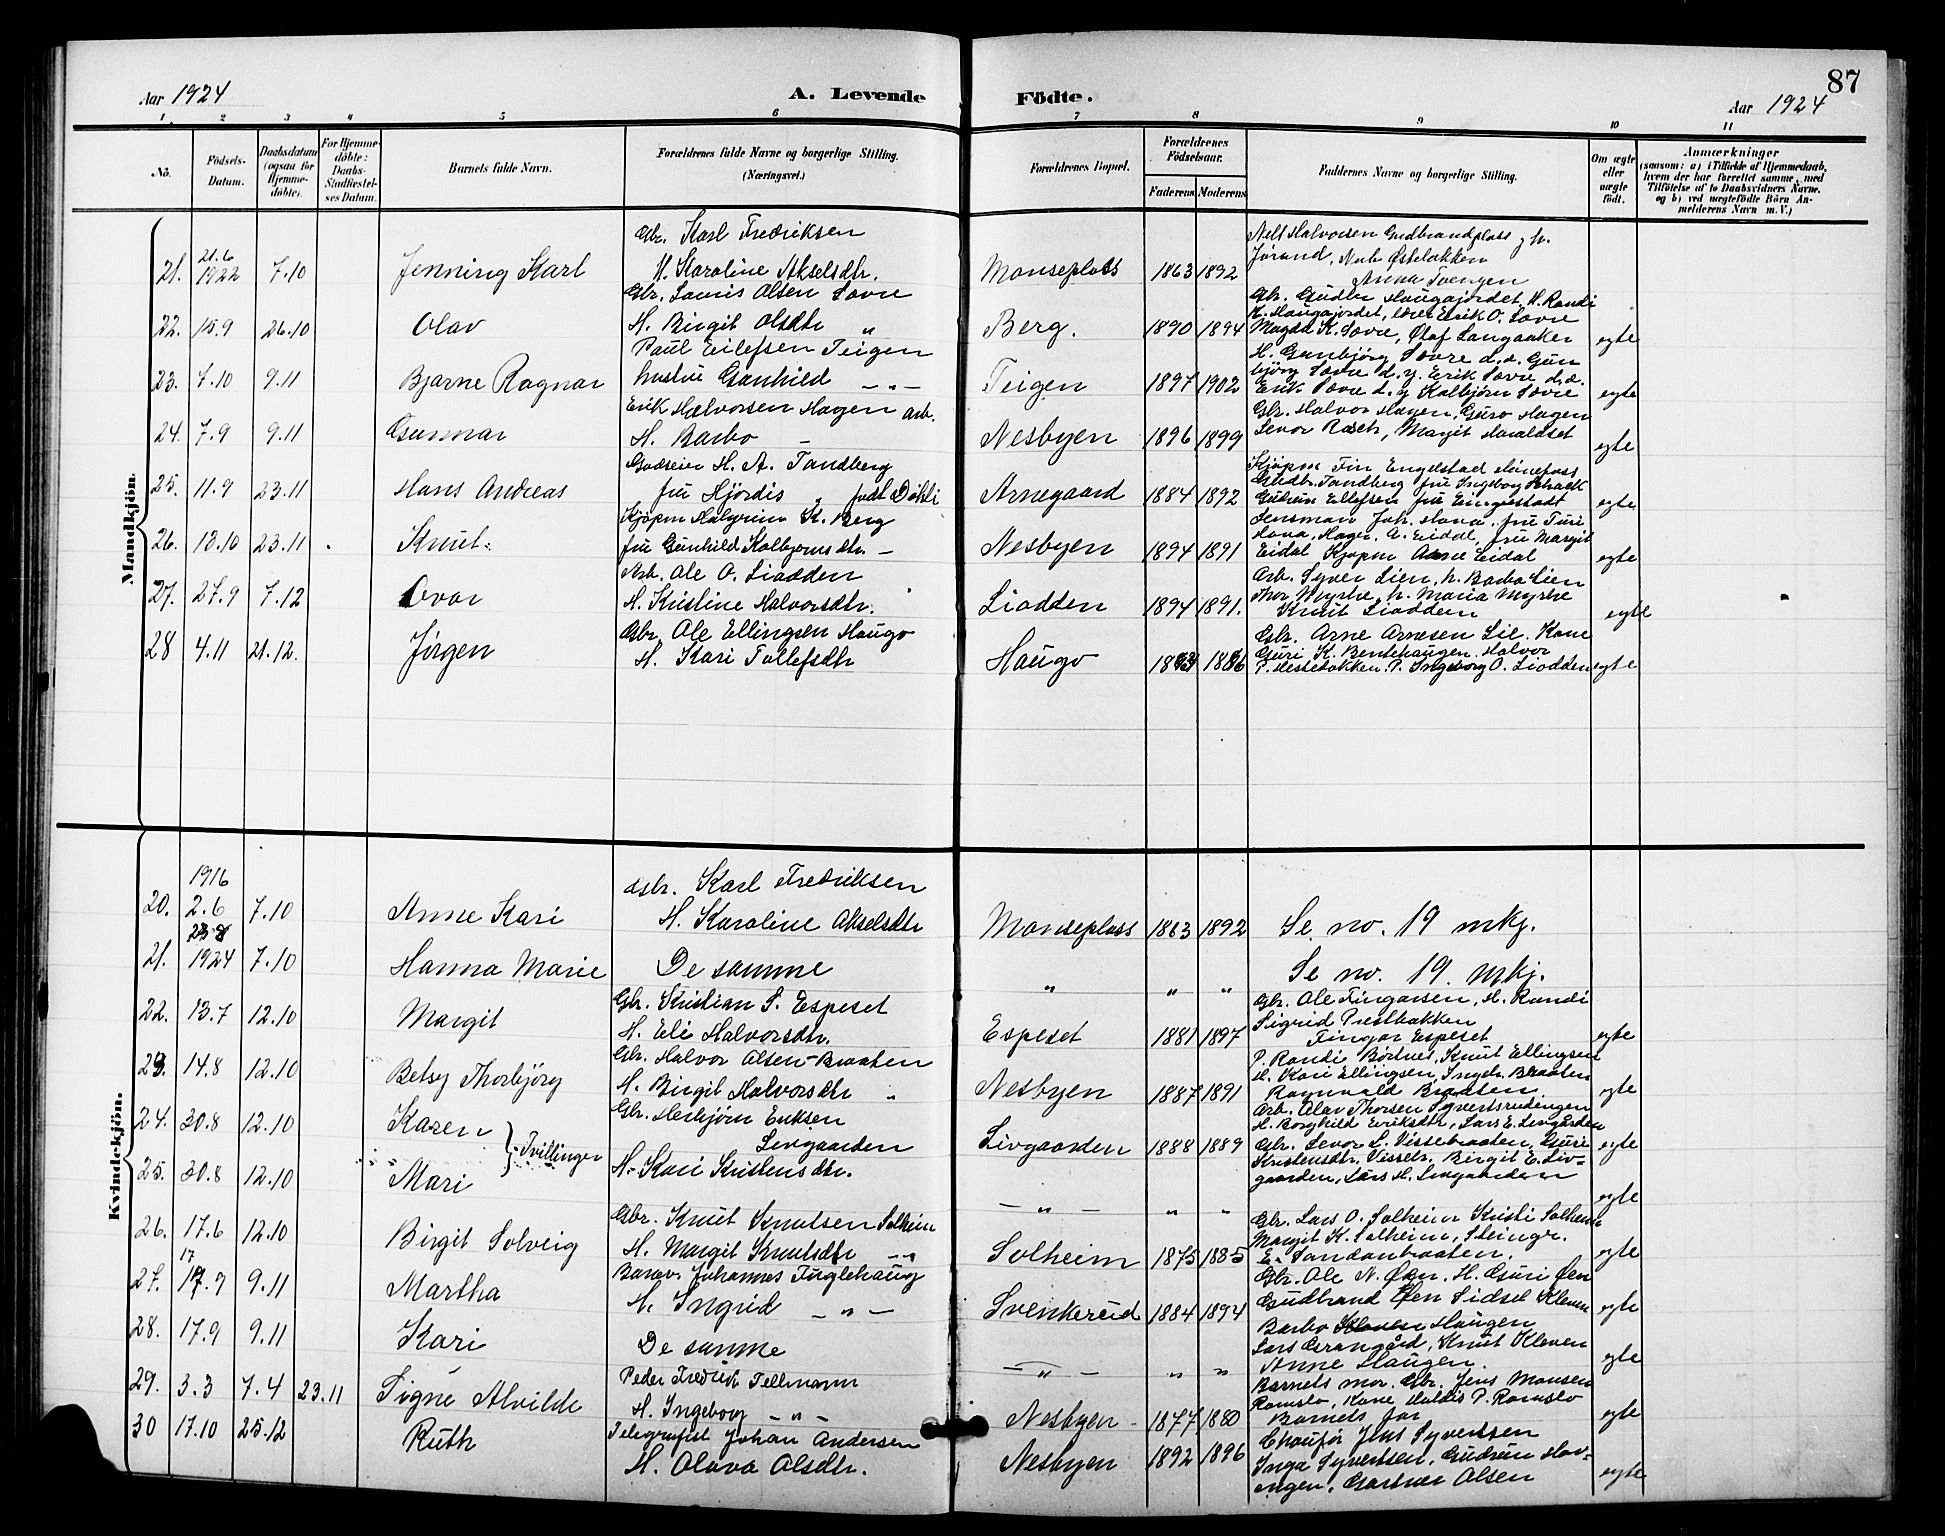 87
Aar 1924
A. Levende
Födte.
Aar 1924
1. 2 3 4 5 6 7 8 9 10 11
No.
Födsels-Datum.
Daabsdatum (ogsaa for Hjemme-döbte).
For Hjemme-döbte: Daabs-Stadfæstel-ses Datum.
Barnets fulde Navn.
Forældrenes fulde Navne og borgerlige Stilling.
(Næringsvei.)
Forældrenes Bopæl.
Forældrenes Födselsaar.
Faderens Moderens
Faddernes Navne og borgerlige Stilling.
Om ægte eller uægte födt.
Anmærkninger
(saasom: a) i Tilfælde af Hjemmedaab,
hvem der har forrettet samme, med
Tilföielse af to Daabsvidners Navne.
og b) ved uægtefödte Börn An-
melderens Navn m.V.)
Mandkjön.
21. 21.6 1922 7.10 Jenning Karl
Gbr. Karl Fredriksen
H. Karoline Akselsdtr.
Monseplass 1863 1892
Nils Halvorsen Gudbrandplass g h.
Jørand,
Anna Toengen
22. 15.9 26.10 Olav
Gbr. Olsen Sævre
H. Birgit Olsdtr "
Berg. 1890 1894
Gbr. Gudbr Haugajordet, H. Randi
K. Haugajordet, Erik O. Sævre
Magda K. Sævre, Olaf Langaaker
egte
23. 7.10 9.11 Bjarne Ragnar
Paul Eilefsen Teigen
hustru Gunhild — " —
Teigen 1897 1902
H. Gunbjørg Sævre d.e. Gun
bjørg Sævre d.y. Erik Sævre d.e.
Erik Sævre d.y Kolbjørn Sævre
egte
24. 7.9 9.11 Gunnar
Erik Halvorsen Hagen arb.
H. Barbo —
Nesbyen 1896 1899
Gbr. Halvor Hagen, Guro Hagen
Sevor Rasch, Margit Haraldset
egte
25. 11.9 23.11 Hans Andreas
Godseier H. A. Tandberg
fru Hjørdis " født Dokki
Arnegaard 1884 1892
Kjøpm Fin Engelstad Hønefoss
Gudbr. Tandberg fru Ingeborg Schack
Gudrun Ellefsen fru
egte
26. 13.10 23.11 Knut
Kjøpm Halgrim K. Berg
fru Gunhild Kolbjørnsdtr. —
Nesbyen 1894 1891
Lensman Joh. Hova, fru Turi
Hova, Hager. A. Eidal, fru Margit
Eidal Kjøpm Arne Eidal
egte
27. 27.9 7.12 Ovar
Arb. Ole O. Liodden
H. Kristine Halvorsdtr.
Liodden 1894 1891.
Arb. Syver Lien, h. Barbo Lien
Thor Myrhe, h. Maria Myrhe
Knut Liodden
egte
28 4.11 21.12. Jørgen
Gbr. Ole Ellingsen Haugo
H. Kari Tollefsdtr
Haugo 1883 1886
Gbr. Arne Arnesen Lie. Kone
Guri K. Bentehaugen. Halvor
P. Hestebakken. P. Ingeborg O. Liodden
egte
Kvindekjön.
20. 1916 2.6 7.10 Anne Kari
Gbr. Karl Fredriksen
H. Karoline Akselsdtr
Monseplass 1863 1892
Se no. 19 mkj.
21. 23.8 1924 7.10 Hanna Marie
De samme
" " "
Se no. 19. mkj.
22. 13.7 12.10 Margit
Gbr. Kristian S. Espeset
H. Eli Halvorsdtr.
Espeset 1881 1897
Gbr. Ole Fingarsen, H. Randi
Sigrid Prestbakken
Fingar Espeset
egte
23. 14.8 12.10 Betsy Thorbjørg
Gbr. Halvor Olsen-Braaten
H. Birgit Halvorsdtr "
Nesbyen 1887 1891
P. Randi Børtnes, Knut Ellingsen
H. Kari Ellingsen, Ingebr. Braaten
Ragnvald Braaten
egte
24. 30.8 12.10 Karen
Tvillinger
Gbr. Herbjørn Eriksen
Livgaarden
Livgaarden 1888 1889
Arb. Olav Thorsen Syvertsrudengen
H. Borghild Eriksdtr, Lars E. Livgarden
egte
25. 30.8 12.10 Mari
H. Kari Kristensdtr.
— " — " "
Gbr. Sevor L. Vissebraaten, Guri
Kristensdtr. Birgit E. Liv-
gaarden, Lars H. Livgaarden
egte
26. 17.6 12.10 Birgit Solveig
Gbr. Knut Knutsen Solheim
H. Margit Knutsdtr — " —
Solheim 1875 1885
Gbr. Lars O. Solheim Kristi Solheim
Margit K. Solheim, Steingr.
E. Sandanbraaten.
egte
27. 17 17.9 9.11 Martha
Johannes Tuglehaug
H. Ingrid — " —
Svenkerud 1884 1894
Gbr. Ole N. Øen, H. Guri Øen
Gudbrand Øen Sidsel Kleven
Barbo Haugen
egte
28. 17.9 9.11 Kari
De samme
— " — " "
Lars Grangård, Knut Kleven
Anne Haugen.
egte
29. 3.3 7.4 23.11 Signe Alvilde
Peder Fredrik Tellmann
H. Ingeborg — " —
Nesbyen 1877 1880
Barnets mor. Gbr. Jens Monsen
Romslo, Kone Haldis P. Romslo
Barnets far
egte
30 17.10 25.12 Ruth
Telegrafist Johan Andersen
H. Olava Olsdtr.
Nesbyen 1892 1896
Chaufør Jens Syvertsen
Inga Syvertsen, Gudrun Hov-
ingen, Gartner Olsen
egte